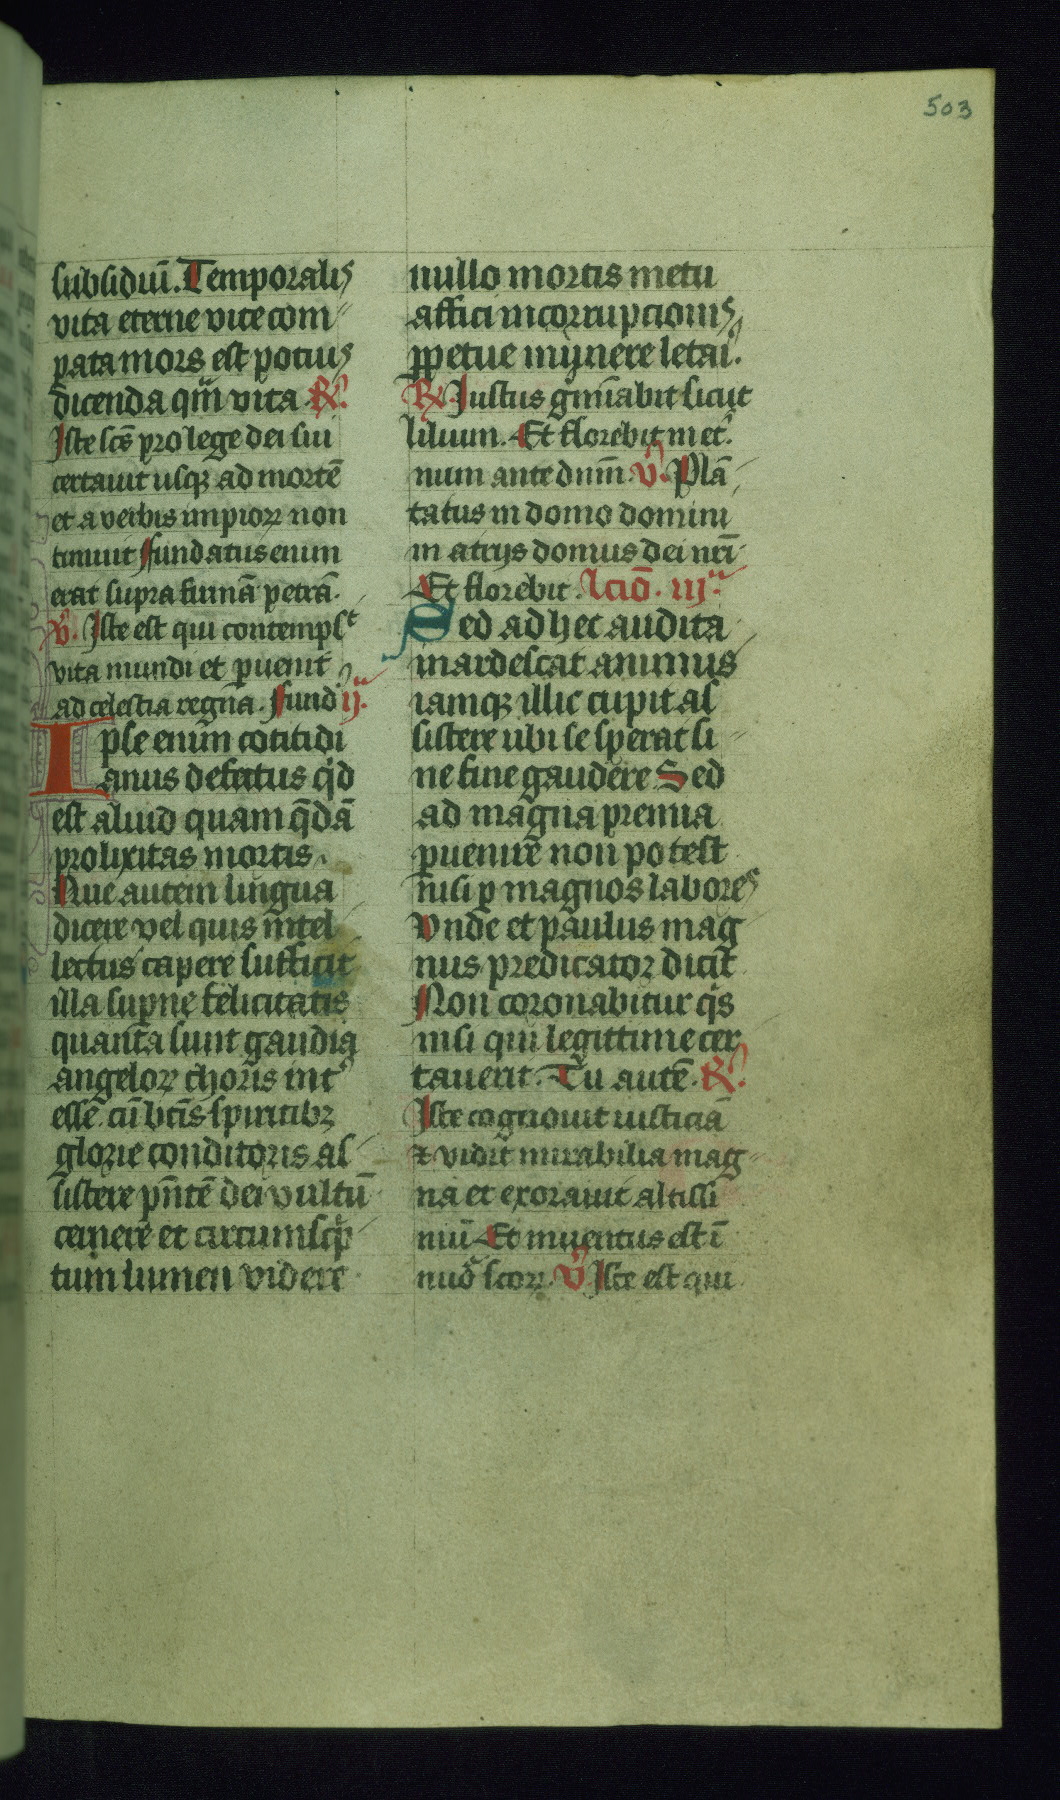 503
subsidiū. Temporalis
vita eterne vite com
pata mors est potius
dicenda qm̄ vita ℟
Iste scs̄ pro lege dei sui
certauit usqꝫ ad mortē
et a verbis impioꝝ non
timuit fundatus enim
erat supra firmā petrā.
℣. Iste est qui contempst
vita mundi et puenit
ad celestia regna. fund ij.
Ipse enim cotitidi
anus defectus qd
est aliud quam q̄dā
prolixitas mortis.
Que autem lingua
dicere vel quis intel
lectus capere sufficit
illa supne felicitatis
quanta sunt gaudia
angeloꝝ choris int
esse. cū btis spiritibꝫ
glorie conditoris as
sistere pn̄tē dei vultū
cernere et circumscp
tum lumen videre
nullo mortis metu
affici incorrupcionis
ꝑpetue munere letai.
℟. Iustus gmīabit sicut
lilium. Et florebit in et
num ante dnm̄. ℣. Plā
tatus in domo domini
in atrijs domus dei nrī
Et florebit. lcio. iij.
Sed ad hec audita
inardescat animus
iamqꝫ illic cupit as
sistere ubi se sperat si
ne fine gaudere Sed
ad magna premia
puenire non potest
nisi p magnos labores
Vnde et paulus mag
nus predicator dicit
Non coronabitur qis
nisi qui legittime cer
tauerit. Tu autē. ℟
Iste cognouit iusticiā
⁊ vidit mirabilia mag
na et exorauit altissi
mū Et inuentus est ī
nuō scoꝝ. ℣. Iste est qui